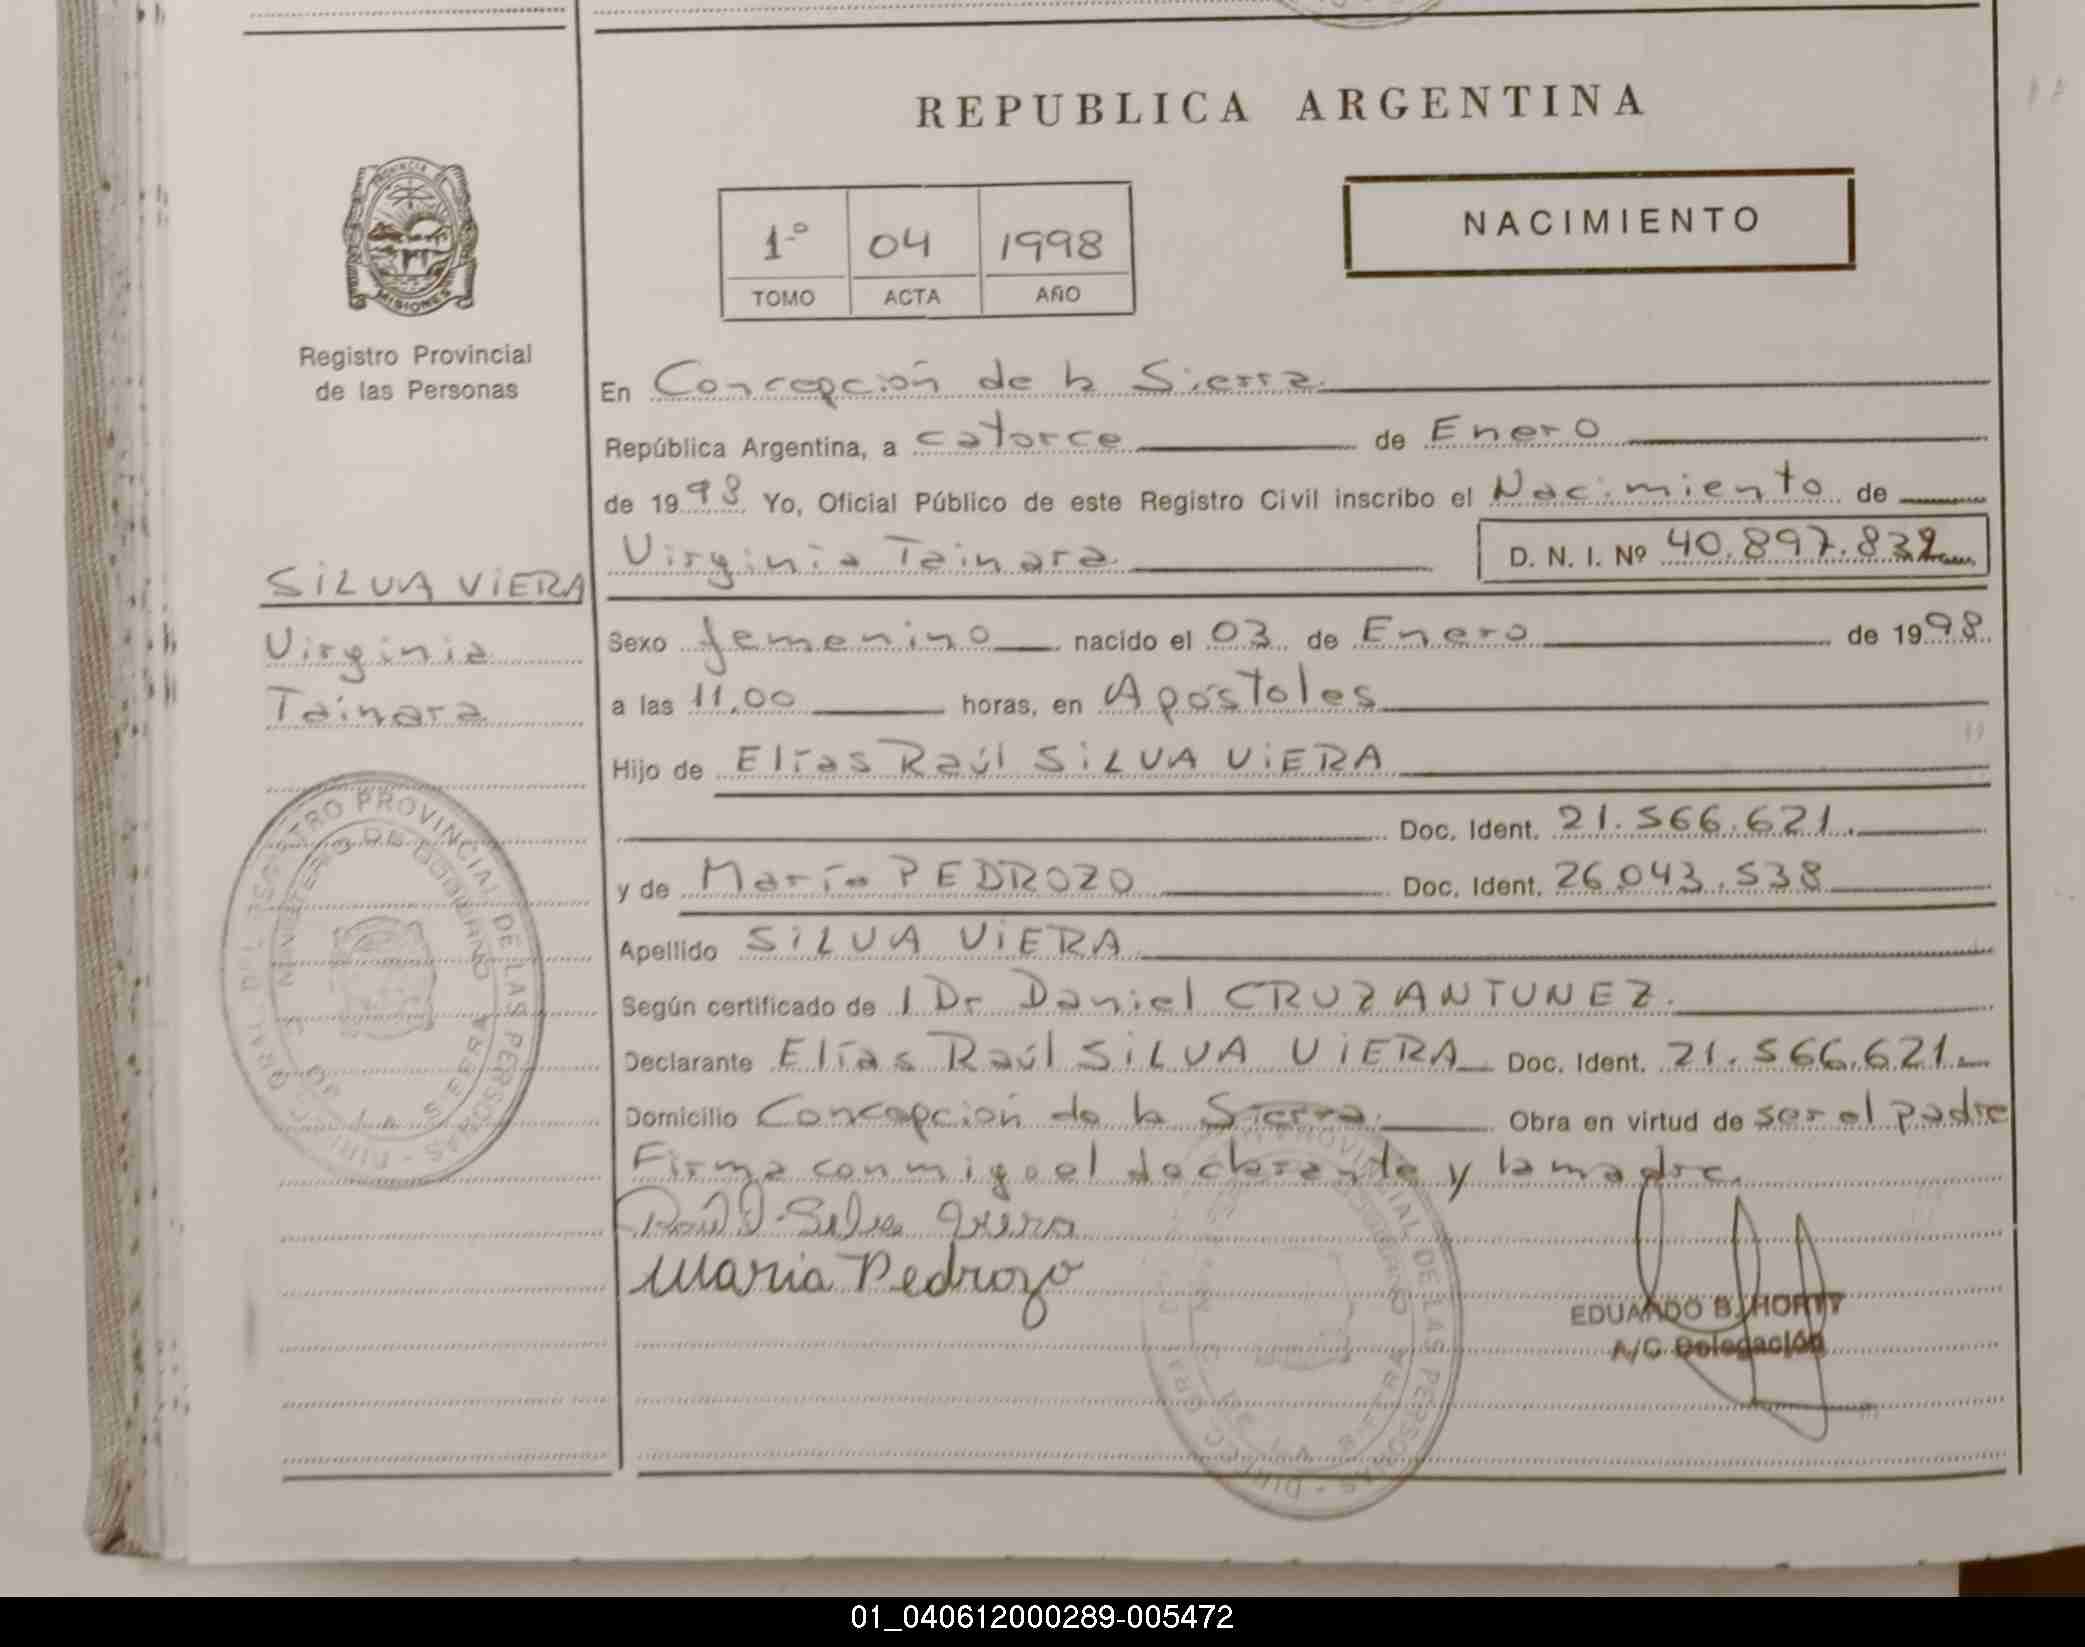 REPUBLICA ARGENTINA
NACIMIENTO
1º 04 1998
TOMO ACTA AÑO
PROVINCIA DE
MISIONES
Registro Provincial
de las Personas
SILVA VIERA
Virginia
Tainara
En Concepción de la Sierra
República Argentina, a catorce de Enero
de 1998 Yo, Oficial Público de este Registro Civil inscribo el Nacimiento de
Virginia Tainara D. N. I. Nº 40.897.832
Sexo femenino nacido el 03 de Enero de 1998
a las 11,00 horas, en Apóstoles
Hijo de Elías Raúl SILVA VIERA
Doc. Ident. 21.566.621.
y de María PEDROZO Doc. Ident. 26.043.538
Apellido SILVA VIERA
Según certificado de l Dr Daniel CRUZ ANTUNEZ.
Declarante Elías Raúl SILVA VIERA Doc. Ident. 21.566.621.
Domicilio Concepción de la Sierra. Obra en virtud de ser el padre
Firma conmigo el declarante y la madre.
Raúl Silva Viera
Maria Pedrozo
EDUARDO B. HORTT
A/C Delegación
DIRECC GRAL DEL REGISTRO PROVINCIAL DE LAS PERSONAS
MINISTERIO DE GOBIERNO
DE LA SIERRA
PROVINCIAL DE LAS PERSONAS - DIRECC GRAL
GOBIERNO
DE LA SIERRA
01_040612000289-005472